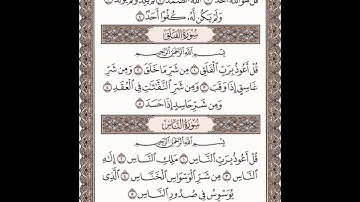 قُلْ هُوَ ٱللَّهُ أَحَدٌ ١ ٱللَّهُ ٱلصَّمَدُ ٢ لَمْ يَلِدْ وَلَمْ يُولَدْ ٣
وَلَمْ يَكُن لَّهُۥ كُفُوًا أَحَدٌۢ ٤
سُورَةُ الفَلَقِ
بِسْمِ ٱللَّهِ ٱلرَّحْمَٰنِ ٱلرَّحِيمِ
قُلْ أَعُوذُ بِرَبِّ ٱلْفَلَقِ ١ مِن شَرِّ مَا خَلَقَ ٢ وَمِن شَرِّ
غَاسِقٍ إِذَا وَقَبَ ٣ وَمِن شَرِّ ٱلنَّفَّٰثَٰتِ فِى ٱلْعُقَدِ ٤
وَمِن شَرِّ حَاسِدٍ إِذَا حَسَدَ ٥
سُورَةُ النَّاسِ
بِسْمِ ٱللَّهِ ٱلرَّحْمَٰنِ ٱلرَّحِيمِ
قُلْ أَعُوذُ بِرَبِّ ٱلنَّاسِ ١ مَلِكِ ٱلنَّاسِ ٢ إِلَٰهِ
ٱلنَّاسِ ٣ مِن شَرِّ ٱلْوَسْوَاسِ ٱلْخَنَّاسِ ٤ ٱلَّذِى
يُوَسْوِسُ فِى صُدُورِ ٱلنَّاسِ ٥